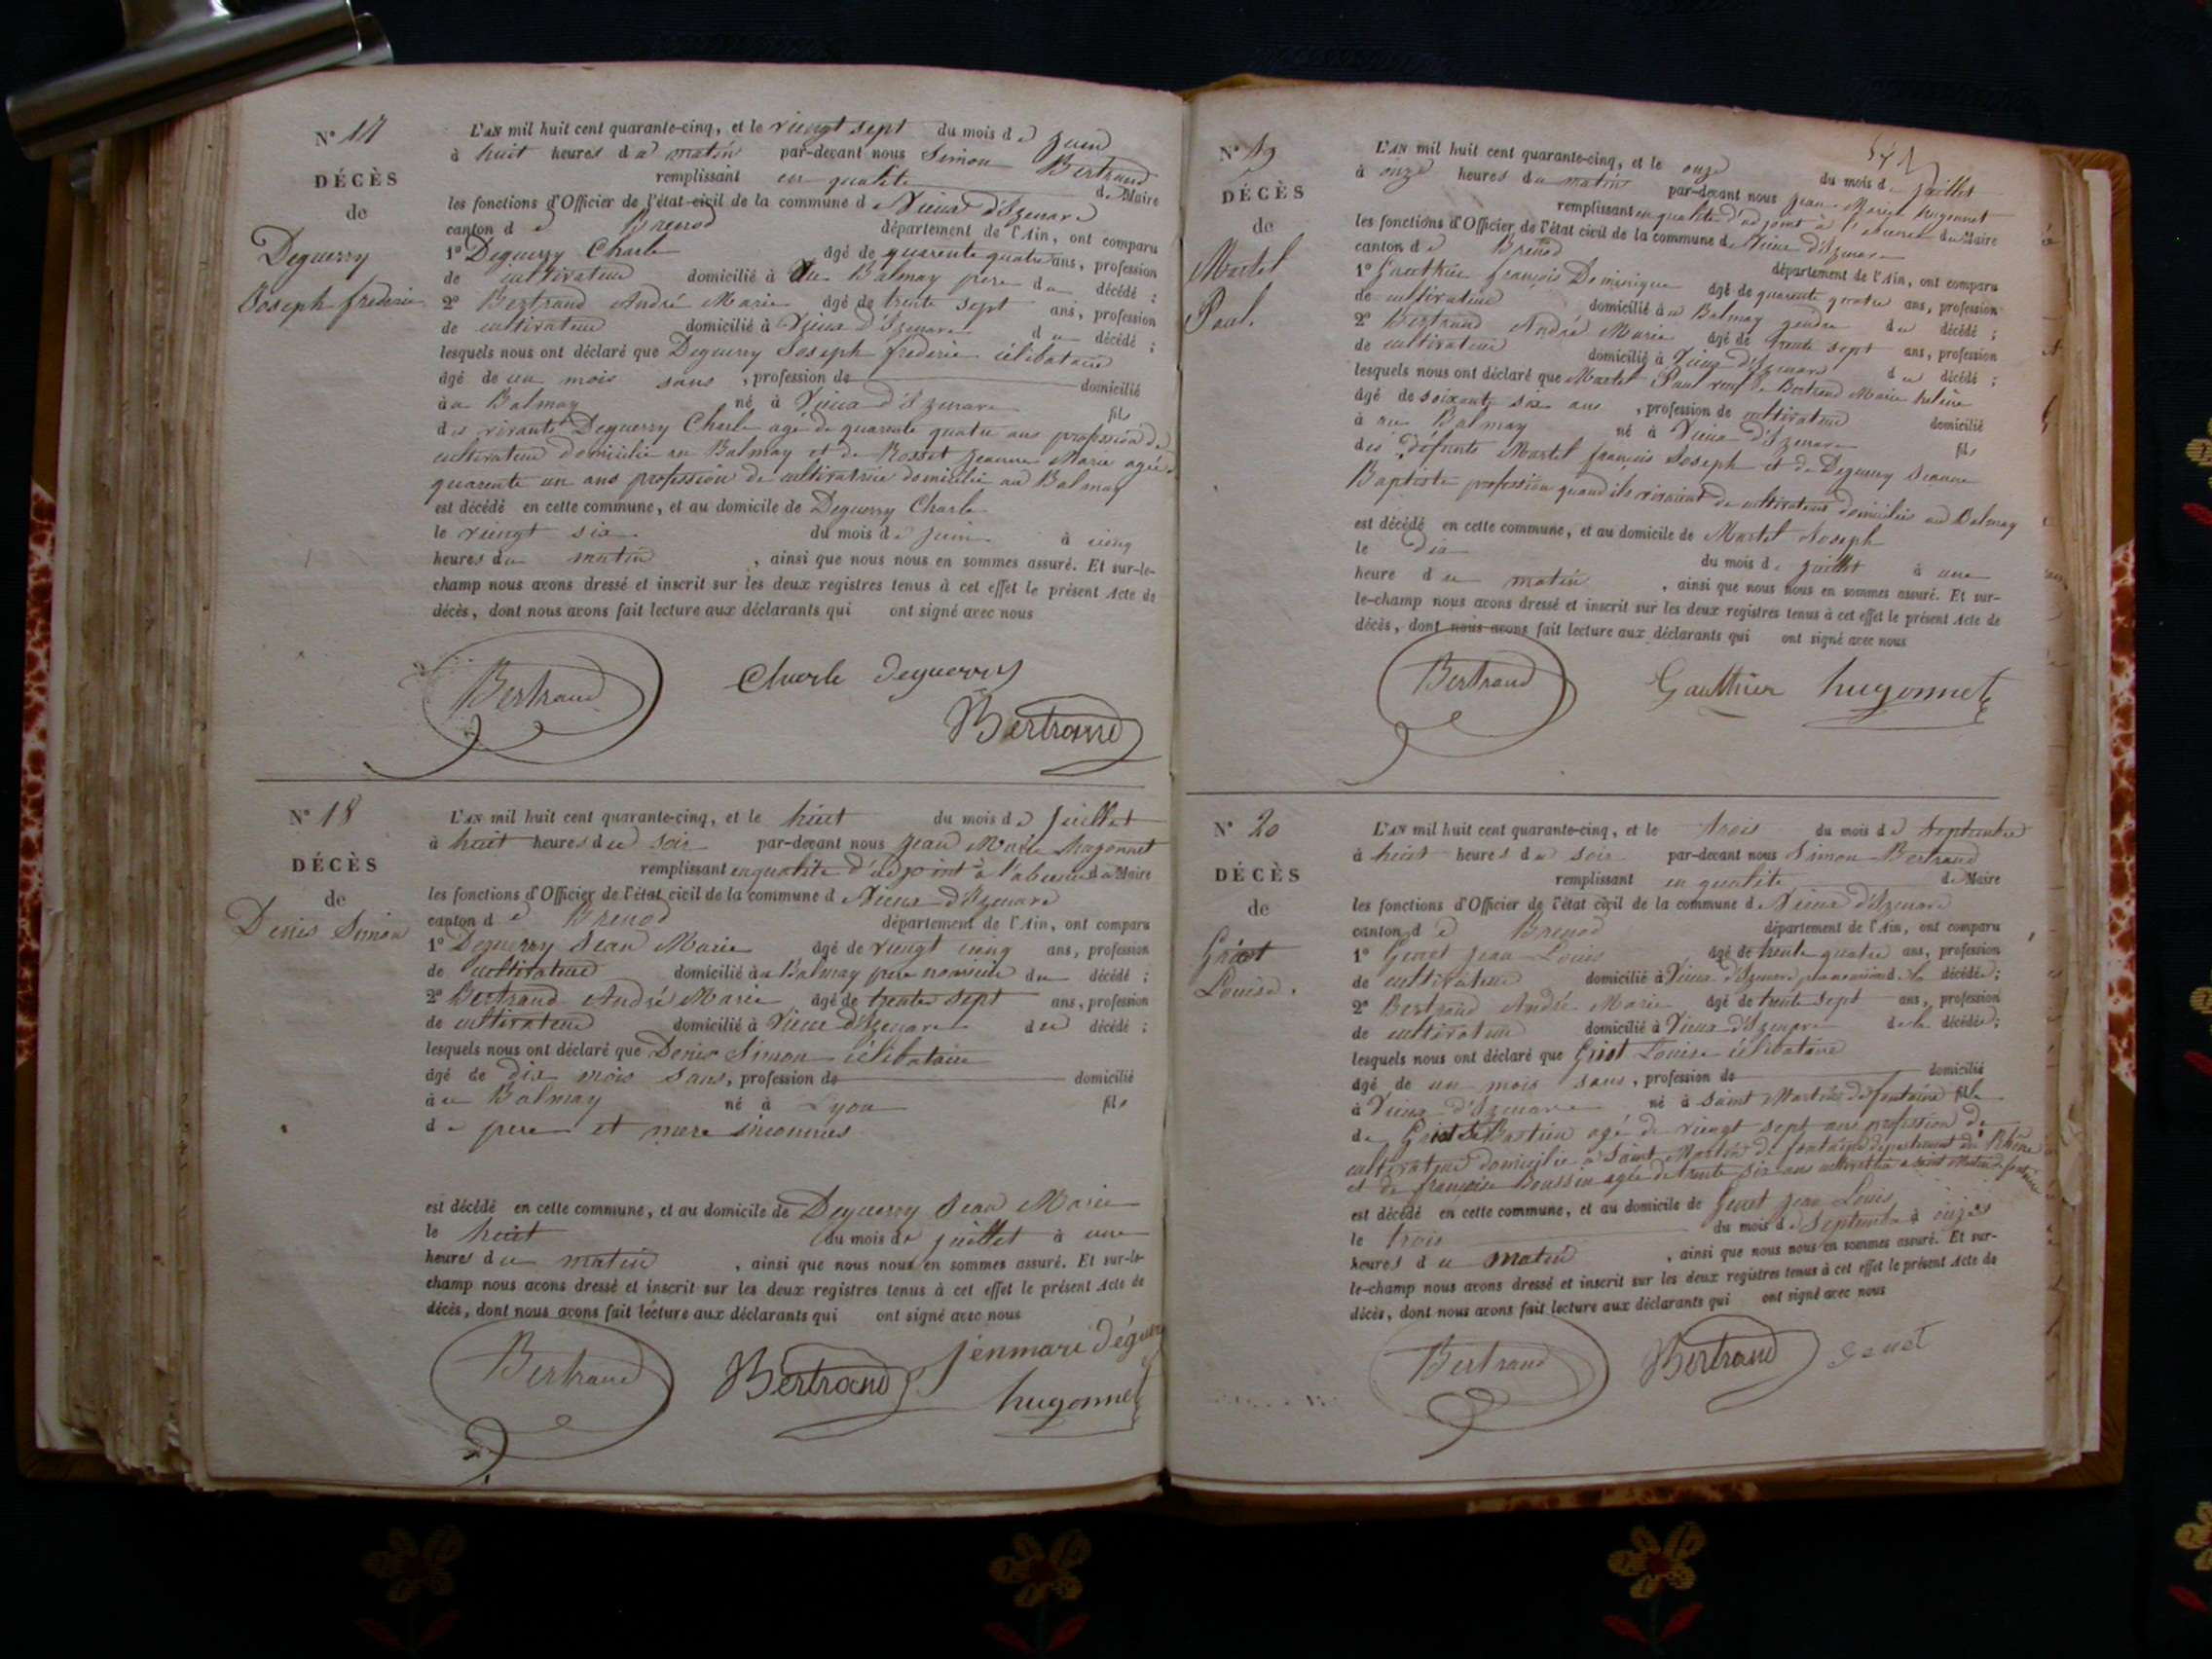 N° 17
DÉCÈS
de
Deguerry
Joseph frederic
L'AN mil huit cent quarante-cinq, et le vingt sept du mois de juin
à huit heures du matin par-devant nous Simon Bertrand
remplissant en qualité de Maire
les fonctions d'Officier de l'état civil de la commune de Vieux d'Izenave
canton de Brenod département de l'Ain, ont comparu
1° Deguerry Charle âgé de quarente quatre ans, profession
de cultivateur domicilié à Au Balmay pere du décédé ;
2° Bertrand André Marie âgé de trente sept ans, profession
de cultivateur domicilié à Vieux d'Izenave du décédé ;
lesquels nous ont déclaré que Deguerry Joseph frederic célibataire
âgé de un mois sans , profession de domicilié
à au Balmay né à Vieux d'Izenave fils
des vivants Deguerry Charle agé de quarente quatre ans profession de
cultivateur domicilié au Balmay et de Rosset jeanne Marie agée
quarente un ans profession de cultivatrice domicilié au Balmay
est décédé en cette commune, et au domicile de Deguerry Charle
le vingt six du mois de juin à cinq
heures du matin , ainsi que nous nous en sommes assuré. Et sur-le-
champ nous avons dressé et inscrit sur les deux registres tenus à cet effet le présent Acte de
décès, dont nous avons fait lecture aux déclarants qui ont signé avec nous
Bertrand Charle deguerry
Bertrand
N° 18
DÉCÈS
de
Denis Simon
L'AN mil huit cent quarante-cinq, et le huit du mois de juillet
à huit heures du soir par-devant nous jean Marie hugonnet
remplissant en qualité d'adjoint à l'absence du Maire
les fonctions d'Officier de l'état civil de la commune de Vieux d'Izenave
canton de Brenod département de l'Ain, ont comparu
1° Deguerry Jean Marie âgé de vingt cinq ans, profession
de cultivateur domicilié à au Balmay pere nourricier du décédé ;
2° Bertrand André Marie âgé de trente sept ans, profession
de cultivateur domicilié à Vieux d'Izenave du décédé ;
lesquels nous ont déclaré que Denis Simon célibataire
âgé de dix mois sans, profession de domicilié
à au Balmay né à Lyon fils
de pere et mere inconnus
est décédé en cette commune, et au domicile de Deguerry Jean Marie
le huit du mois de juillet à une
heures du matin , ainsi que nous nous en sommes assuré. Et sur-le-
champ nous avons dressé et inscrit sur les deux registres tenus à cet effet le présent Acte de
décès, dont nous avons fait lecture aux déclarants qui ont signé avec nous
Bertrand Bertrand jenmari
hugonnet
N° 19
DÉCÈS
de
Martel
Paul.
L'AN mil huit cent quarante-cinq, et le onze du mois de juillet
à onze heures du matin par-devant nous jean Marie hugonnet
remplissant en qualité d'adjoint à l'absence du Maire
les fonctions d'Officier de l'état civil de la commune de Vieux d'Izenave
canton de Brenod département de l'Ain, ont comparu
1° Gauthier françois Dominique âgé de quarente quatre ans, profession
de cultivateur domicilié à au Balmay gendre du décédé ;
2° Bertrand André Marie âgé de trente sept ans, profession
de cultivateur domicilié à Vieux d'Izenave du décédé ;
lesquels nous ont déclaré que Martel Paul veuf de Bertrand Marie helene
âgé de soixante six ans , profession de cultivateur domicilié
à au Balmay né à Vieux d'Izenave fils
des défunts Martel françois Joseph et de Deguerry Jeanne
Baptiste profession quand ils vivaient de cultivateurs domiciliés au Balmay
est décédé en cette commune, et au domicile de Martel Joseph
le dix du mois de juillet à une
heure du matin , ainsi que nous nous en sommes assuré. Et sur-
le-champ nous avons dressé et inscrit sur les deux registres tenus à cet effet le présent Acte de
décès, dont nous avons fait lecture aux déclarants qui ont signé avec nous
Bertrand Gauthier hugonnet
N° 20
DÉCÈS
de
Griot
Louise.
L'AN mil huit cent quarante-cinq, et le trois du mois de Septembre
à huit heures du soir par-devant nous Simon Bertrand
remplissant en qualité de Maire
les fonctions d'Officier de l'état civil de la commune de Vieux d'Izenave
canton de Brenod département de l'Ain, ont comparu
1° Genet jean Louis âgé de trente quatre ans, profession
de cultivateur domicilié à Vieux d'Izenave de la décédée ;
2° Bertrand André Marie âgé de trente sept ans, profession
de cultivateur domicilié à Vieux d'Izenave de la décédée ;
lesquels nous ont déclaré que Griot Louise célibataire
âgé de un mois sans , profession de domicilié
à Vieux d'Izenave né à Saint Martin de fontaine fille
de Griot Sébastien agé de vingt sept ans profession de
cultivateur domicilié à Saint Martin de fontaine departement du Rhône
et de françoise Boussin agée de trente six ans cultivatrice a Saint Martin de fontaine
est décédé en cette commune, et au domicile de Genet jean Louis
le trois du mois de Septembre à onze
heures du matin , ainsi que nous nous en sommes assuré. Et sur-
le-champ nous avons dressé et inscrit sur les deux registres tenus à cet effet le présent Acte de
décès, dont nous avons fait lecture aux déclarants qui ont signé avec nous
Bertrand Bertrand Genet